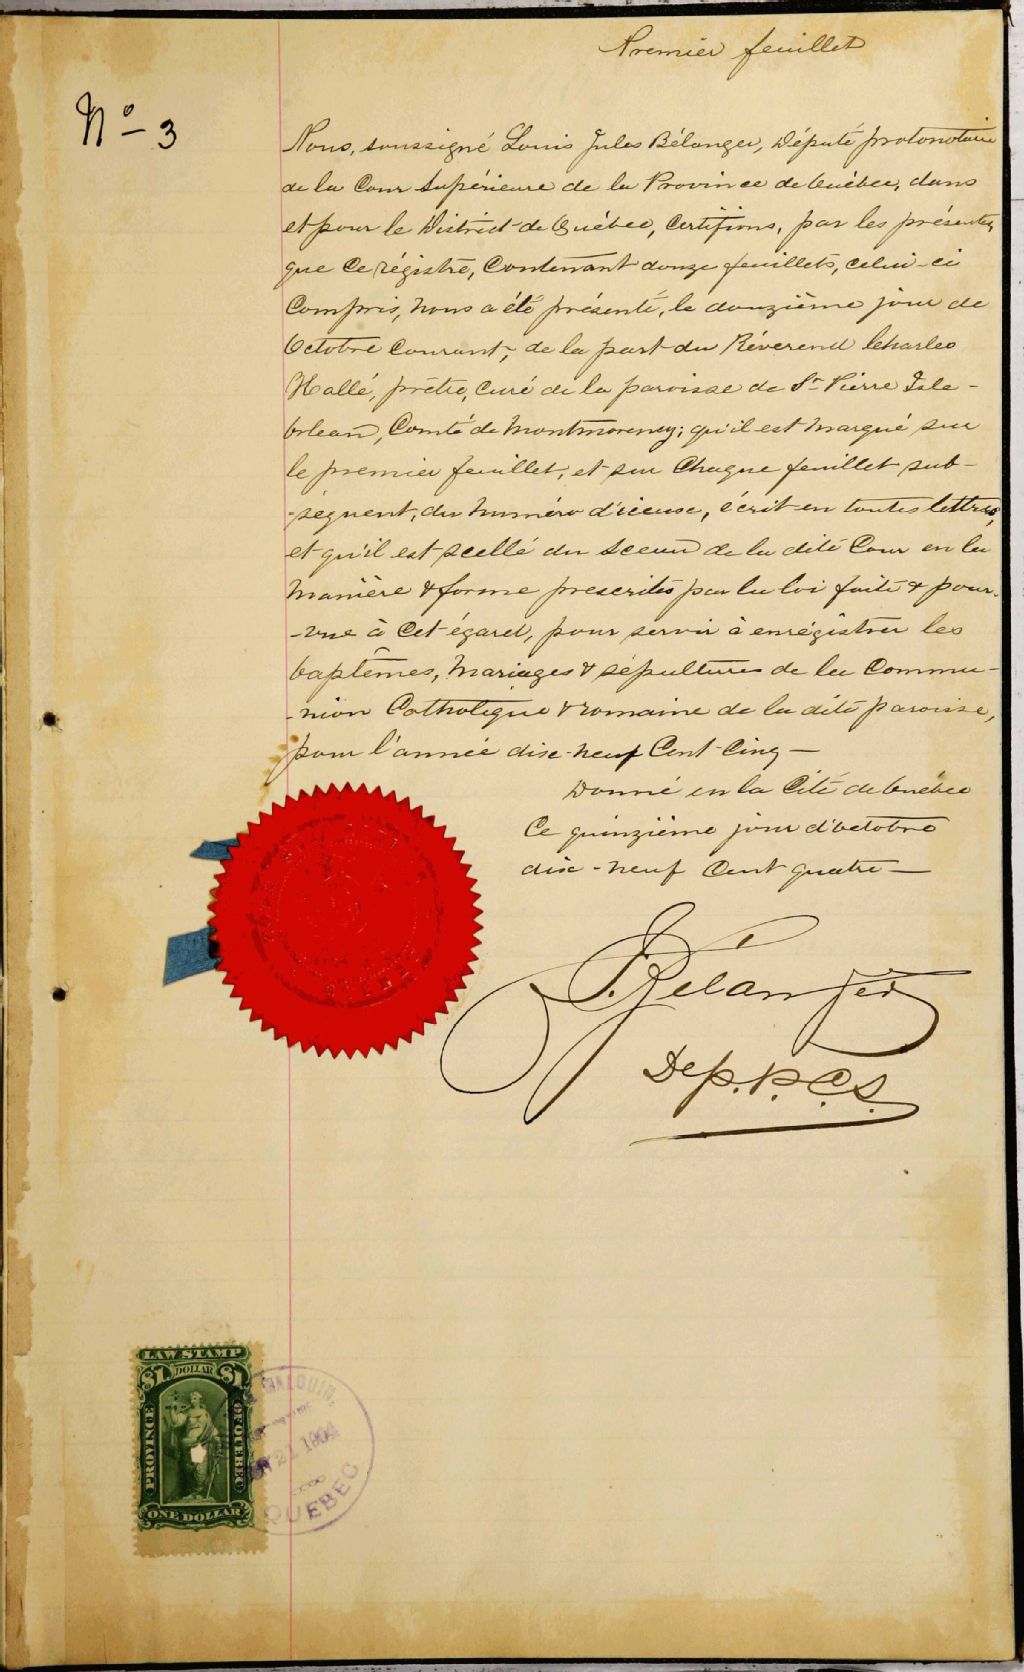 Premier feuillet
No - 3
Nous, soussigné Louis Jules Bélanger, Député protonotaire
de la Cour Supérieure de la Province de Québec, dans
et pour le District de Québec, Certifions, par les présentes,
que ce régistre, Contenant douze feuillets, celui-ci
Compris, nous a été présenté, le douzième jour de
Octobre Courant, de la part du Révérend Charles
Hallé, prêtre, Curé de la paroisse de St Pierre Isle-
Orléans, Comté de Montmorency; qu'il est marqué sur
le premier feuillet, et sur Chaque feuillet sub-
-séquent, du numéro d'iceux, écrit en toutes lettres,
et qu'il est scellé du Sceau de la dite Cour en la
Manière & forme prescrites par la loi faite & pour-
-vue à Cet égard, pour servir à enrégistrer les
baptêmes, Mariages & sépultures de la Commu-
-nion Catholique & romaine de la dite paroisse,
pour l'année dix-neuf Cent Cinq —
Donné en la Cité de Québec
Ce quinzième jour d'octobre
dix-neuf Cent quatre —
J. Bélanger
Dep. P.C.S.
LAW STAMP
$1 DOLLAR $1
PROVINCE OF QUEBEC
ONE DOLLAR
21 1904
QUEBEC